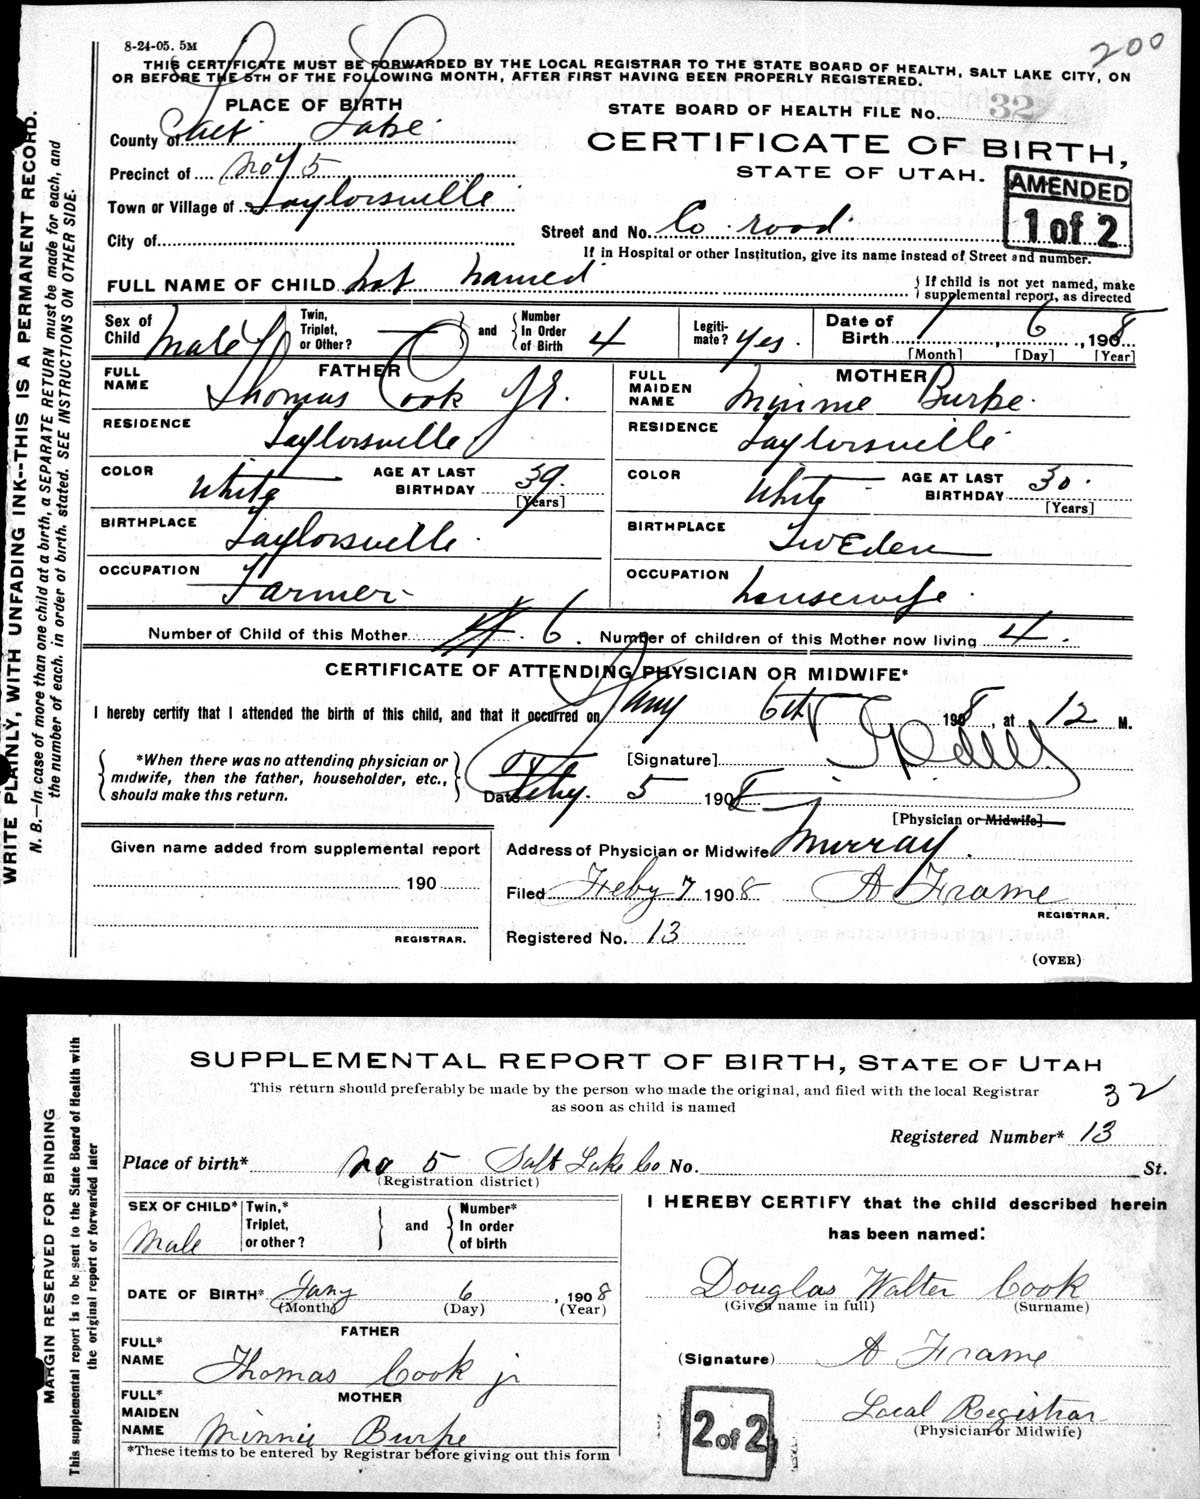 200
8-24-05. 5M
THIS CERTIFICATE MUST BE FORWARDED BY THE LOCAL REGISTRAR TO THE STATE BOARD OF HEALTH, SALT LAKE CITY, ON
OR BEFORE THE 5TH OF THE FOLLOWING MONTH, AFTER FIRST HAVING BEEN PROPERLY REGISTERED.
PLACE OF BIRTH
STATE BOARD OF HEALTH FILE No. 32
County of Salt Lake
CERTIFICATE OF BIRTH,
STATE OF UTAH.
Precinct of No 5
AMENDED
1 of 2
Town or Village of Taylorsville
City of
Street and No. Co road
If in Hospital or other Institution, give its name instead of Street and number.
FULL NAME OF CHILD not named
If child is not yet named, make
supplemental report, as directed
Sex of Child Male
Twin, Triplet, or Other?
and
Number In Order of Birth 4
Legitimate? yes.
Date of Birth 1 6, 1908
[Month] [Day] [Year]
FATHER
MOTHER
FULL NAME Thomas Cook Jr.
FULL MAIDEN NAME Minnie Burke.
RESIDENCE Taylorsville
RESIDENCE Taylorsville
COLOR White AGE AT LAST BIRTHDAY 39. [Years]
COLOR White AGE AT LAST BIRTHDAY 30. [Years]
BIRTHPLACE Taylorsville.
BIRTHPLACE SwEden
OCCUPATION Farmer
OCCUPATION housewife.
Number of Child of this Mother 6. Number of children of this Mother now living 4.
CERTIFICATE OF ATTENDING PHYSICIAN OR MIDWIFE*
I hereby certify that I attended the birth of this child, and that it occurred on Jany 6th 1908, at 12 M.
*When there was no attending physician or
midwife, then the father, householder, etc.,
should make this return.
[Signature]
Date Feby. 5 1908
[Physician or Midwife]
Given name added from supplemental report
190
REGISTRAR.
Address of Physician or Midwife Murray.
Filed Feby 7 1908 A Frame
REGISTRAR.
Registered No. 13
(OVER)
WRITE PLAINLY, WITH UNFADING INK--THIS IS A PERMANENT RECORD.
N. B.—In case of more than one child at a birth, a SEPARATE RETURN must be made for each, and
the number of each, in order of birth, stated. SEE INSTRUCTIONS ON OTHER SIDE.
SUPPLEMENTAL REPORT OF BIRTH, STATE OF UTAH
This return should preferably be made by the person who made the original, and filed with the local Registrar
as soon as child is named
32
Registered Number* 13
Place of birth* no 5 Salt Lake Co No. St.
(Registration district)
SEX OF CHILD* Male
Twin,* Triplet, or other?
and
Number* In order of birth
DATE OF BIRTH* Jany 6, 1908
(Month) (Day) (Year)
FATHER
FULL* NAME Thomas Cook jr
MOTHER
FULL* MAIDEN NAME Minnie Burke
*These items to be entered by Registrar before giving out this form
I HEREBY CERTIFY that the child described herein
has been named:
Douglas Walter Cook
(Given name in full) (Surname)
(Signature) A Frame
Local Registrar
(Physician or Midwife)
2 of 2
MARGIN RESERVED FOR BINDING
This supplemental report is to be sent to the State Board of Health with
the original report or forwarded later